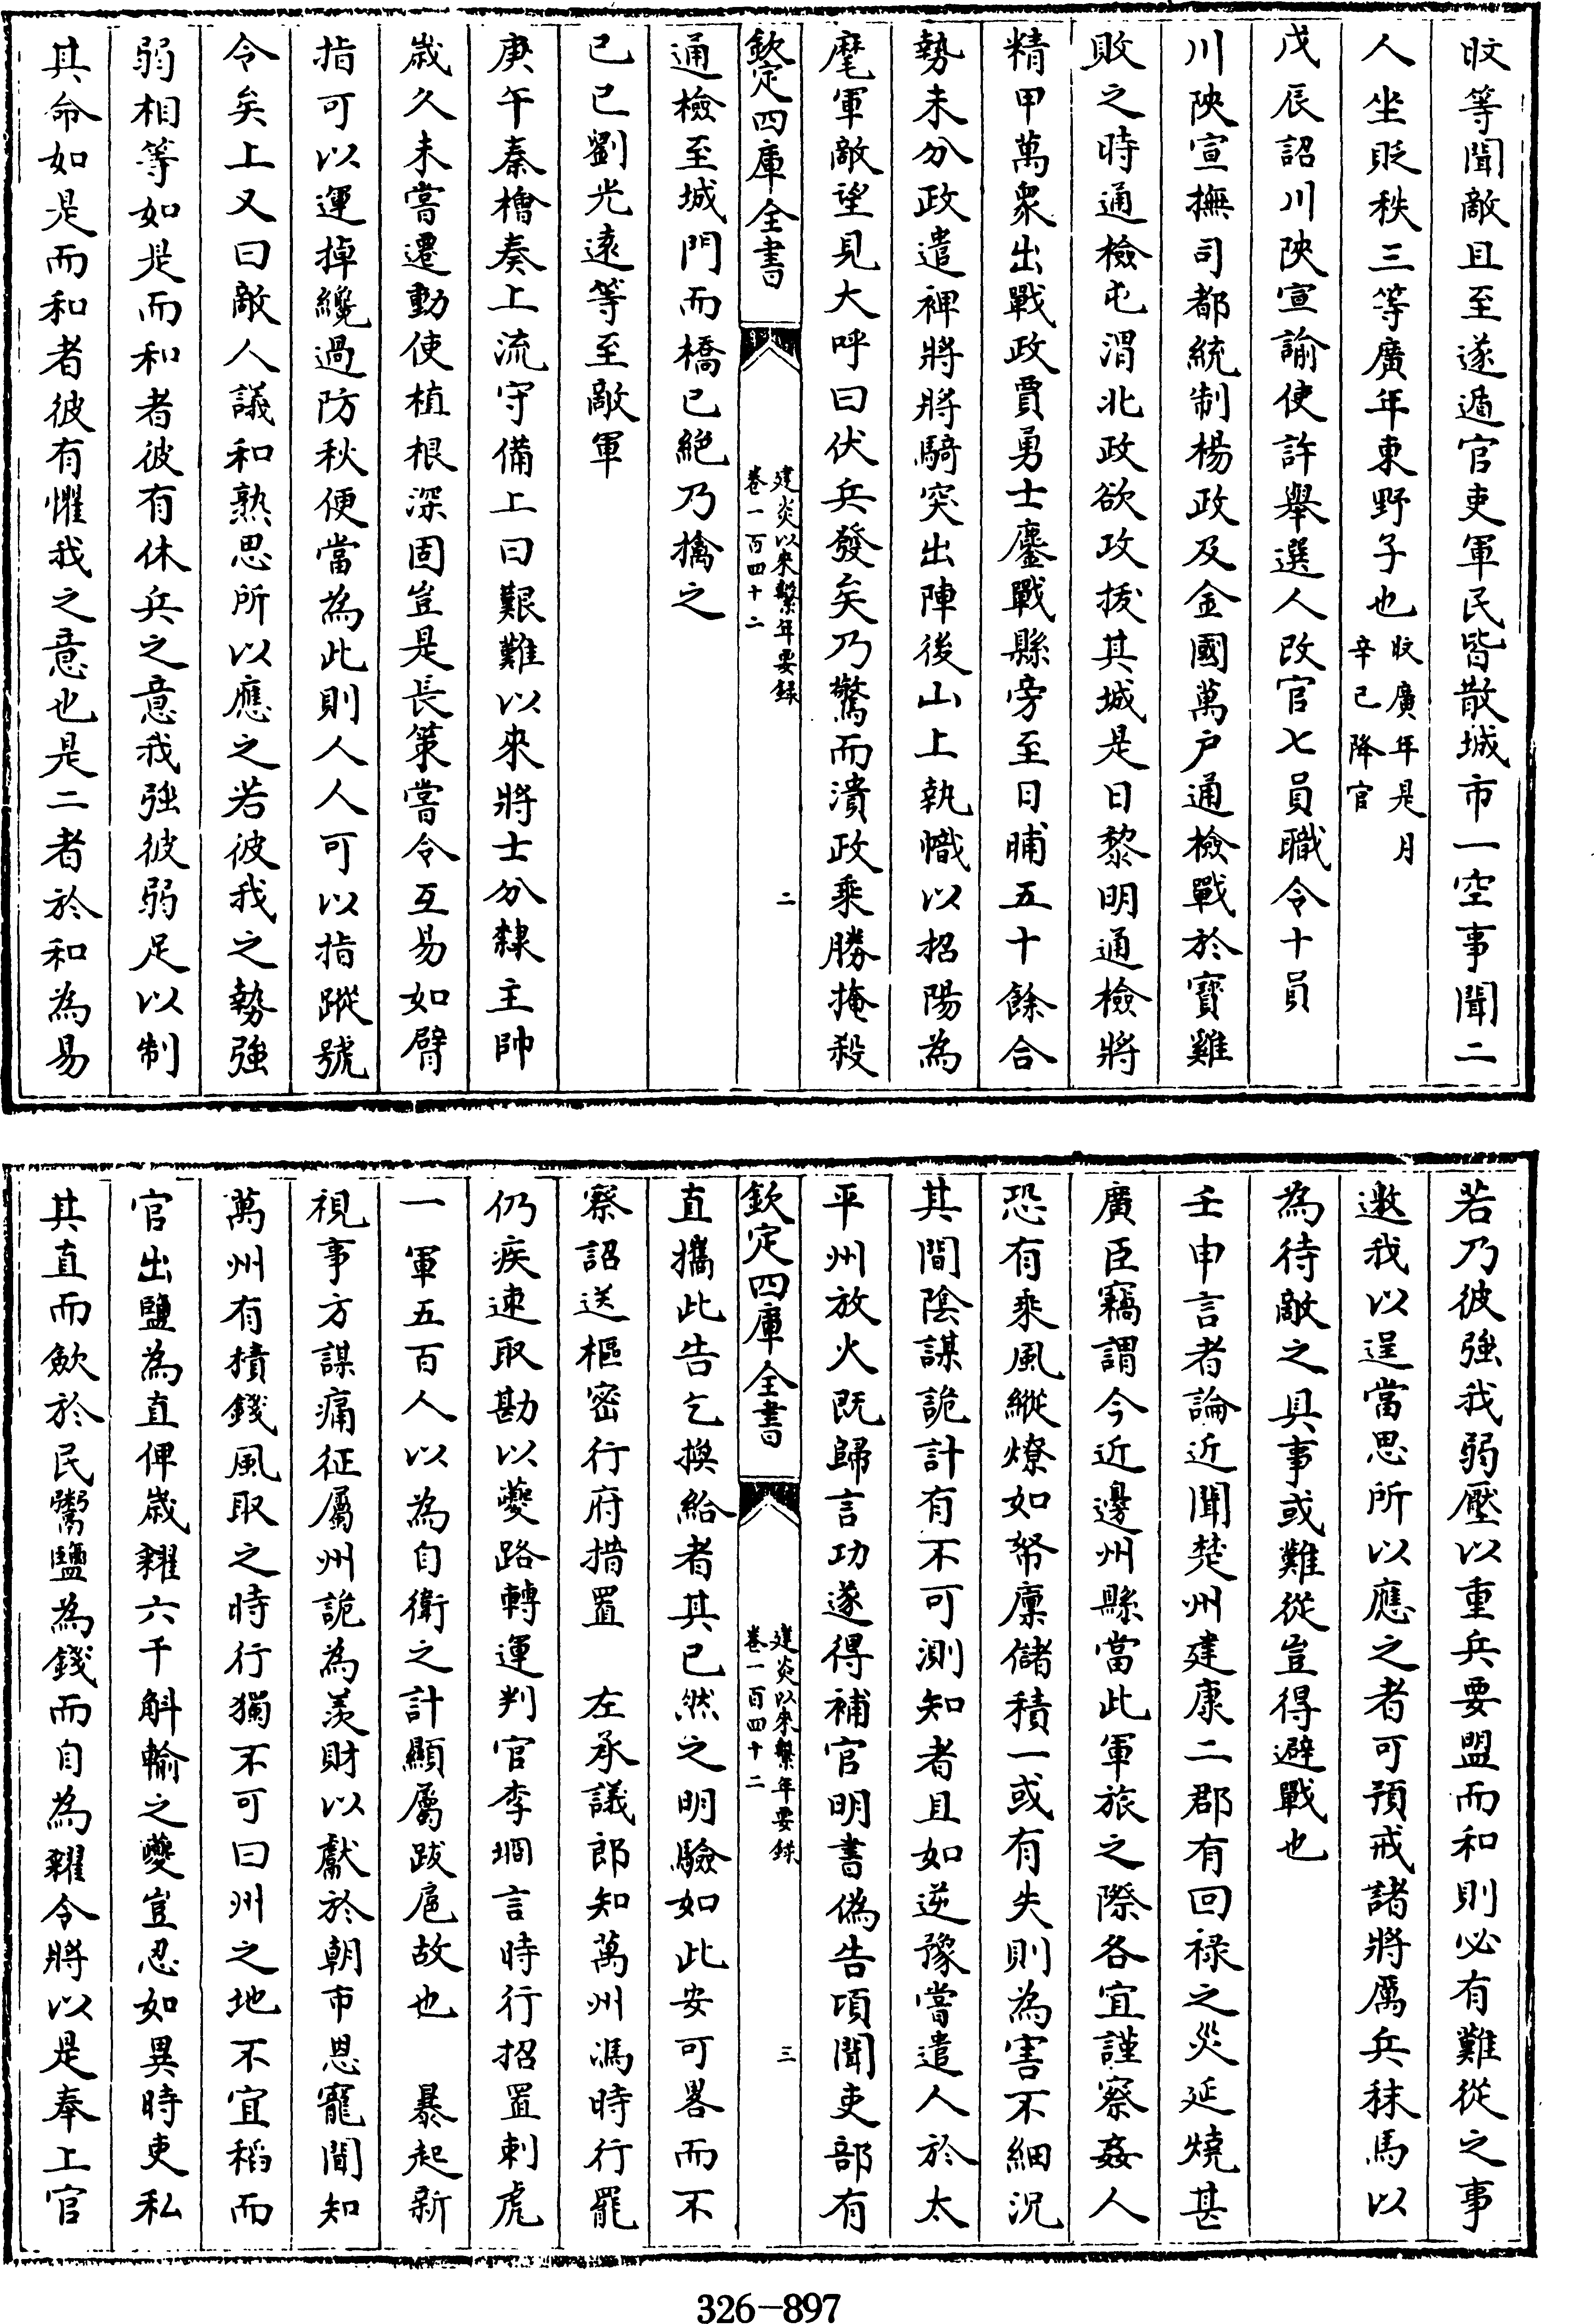 旼等聞敵且至遂遁官吏軍民皆散城市一空事聞二
人坐貶秩三等廣年東野子也旼廣年是月辛已降官
戊辰詔川陜宣諭使許舉選人改官七員職令十員
川陜宣撫司都統制楊政及金國萬户通檢戰於寳雞
敗之時通檢屯渭北政欲攻拔其城是日黎明通檢將
精甲萬衆出戰政賈勇士鏖戰縣旁至日晡五十餘合
勢未分政遣裨將將騎突出陣後山上執幟以招陽為
麾軍敵望見大呼曰伏兵發矣乃驚而潰政乘勝掩殺
欽定四庫全書 建炎以來繫年要録 卷一百四十二 二
通檢至城門而橋已絶乃擒之
已已劉光遠等至敵軍
庚午秦檜奏上流守備上曰艱難以來將士分隸主帥
嵗久未嘗遷動使植根深固豈是長策嘗令互易如臂
指可以運掉纔過防秋便當為此則人人可以指蹤號
令矣上又曰敵人議和熟思所以應之若彼我之勢強
弱相等如是而和者彼有休兵之意我強彼弱足以制
其命如是而和者彼有懼我之意也是二者於和為易
若乃彼強我弱壓以重兵要盟而和則必有難從之事
邀我以逞當思所以應之者可預戒諸將厲兵秣馬以
為待敵之具事或難從豈得避戰也
壬申言者論近聞楚州建康二郡有回禄之災延燒甚
廣臣竊謂今近邊州縣當此軍旅之際各宜謹察姦人
恐有乘風縱燎如帑廩儲積一或有失則為害不細況
其間陰謀詭計有不可測知者且如逆豫嘗遣人於太
平州放火既歸言功遂得補官明書偽告項聞吏部有
欽定四庫全書 建炎以來繫年要録 卷一百四十二 三
直攜此告乞換給者其已然之明驗如此安可畧而不
察詔送樞密行府措置 左承議郎知萬州馮時行罷
仍疾速取勘以夔路轉運判官李堈言時行招置剌虎
一軍五百人以為自衛之計顯屬跋扈故也 暴起新
視事方謀痛征屬州詭為羡財以獻於朝市恩寵聞知
萬州有積錢風取之時行獨不可曰州之地不宜稻而
官出鹽為直俾嵗糴六千斛輸之夔豈忍如異時吏私
其直而斂於民鬻鹽為錢而自為糴令將以是奉上官
326—897